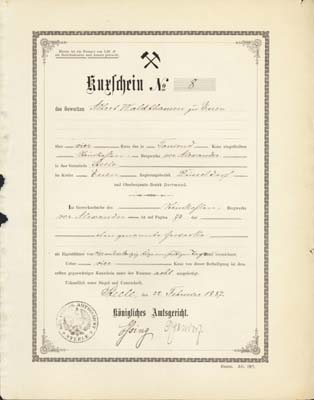 Kuxschein № 8
des Gewerken Albert Waldthausen zu Essen
über vier Kuxe des in Tausend Kuxe eingetheilten
Steinkohlen- Bergwerks ver. Alexander
in der Gemeinde Steele
im Kreise Essen Regierungsbezirk Düsseldorf
und Oberbergamts-Bezirk Dortmund.
Im Gewerkenbuche des Steinkohlen- Bergwerks
ver. Alexander ist auf Pagina 80 der
obengenannte Gewerke
als Eigenthümer von Kuxen verzeichnet.
Ueber vier Kuxe von dieser Betheiligung ist der-
selben gegenwärtiger Kuxschein unter der Nummer acht ausgefertigt.
Urkundlich unter Siegel und Unterschrift.
Steele, den 22 Februar 1887.
Königliches Amtsgericht.